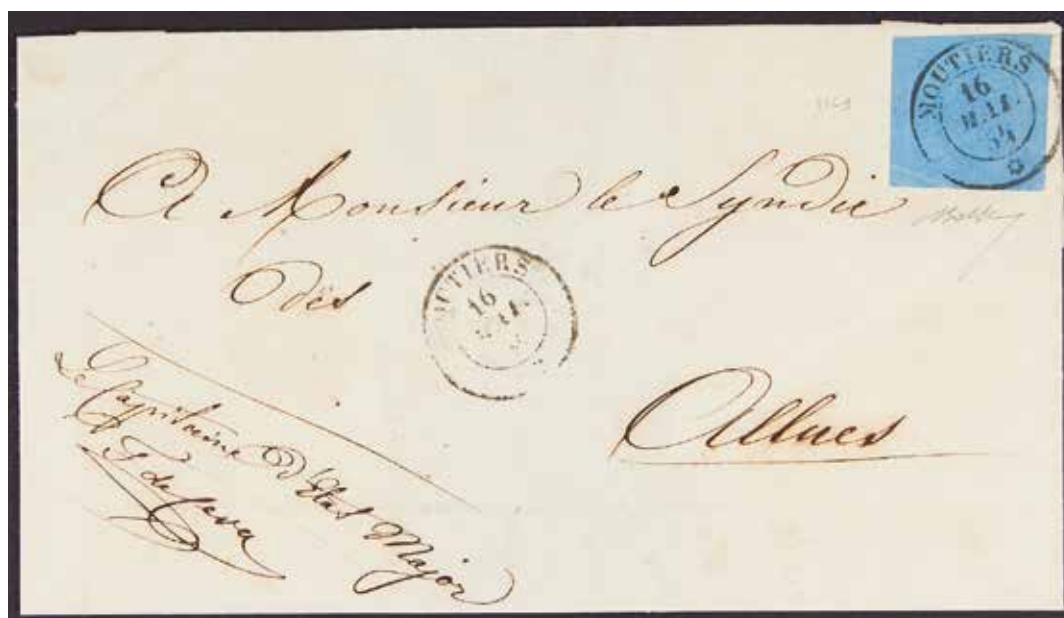 MOUTIERS
16
MAI.
54
A Monsieur le Syndic
des
OUTIERS
16
Allues
Le Capitaine d'Etat Major
de Ceva